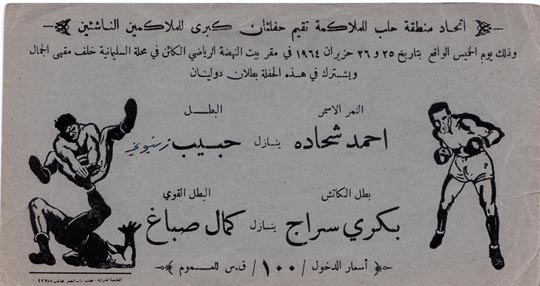 اتحاد منطقة حلب للملاكمة تقيم حفلتان كبرى للملاكمين الناشئين
وذلك يوم الخميس الواقع بتاريخ ٢٥ و ٢٦ حزيران ١٩٦٤ في مقر بيت النهضة الرياضي الكائن في محلة السليمانية خلف مقهى الجمال
ويشترك في هذه الحفلة بطلان دوليان
النمر الاسمر البطل
احمد شحاده ينازل حبيب
بطل الكاتش البطل القوي
بكري سراج ينازل كمال صباغ
اسعار الدخول / ١٠٠ / ق.س للعموم